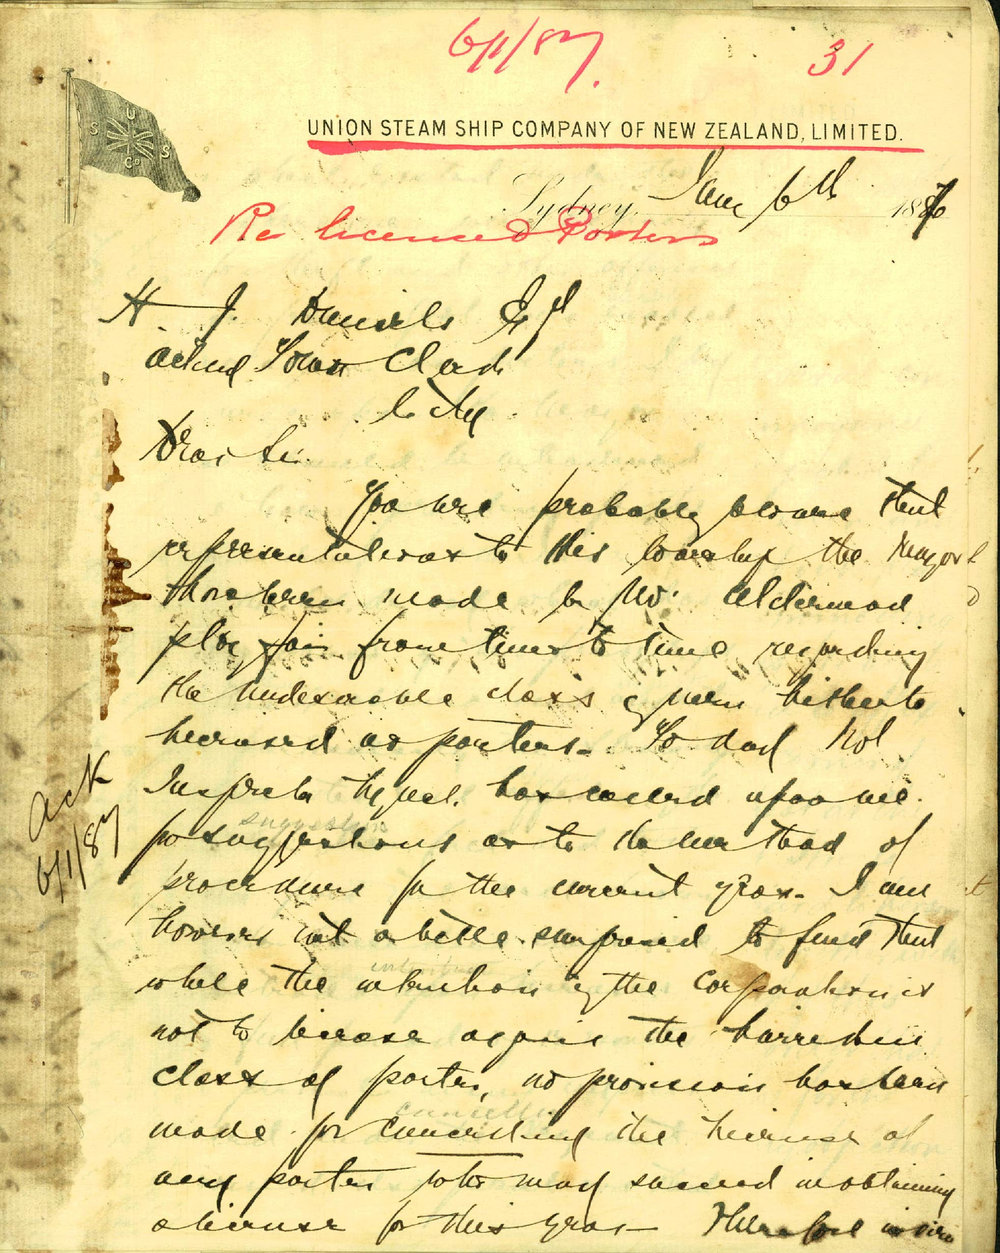 6/1/87.
31
U S S Co
UNION STEAM SHIP COMPANY OF NEW ZEALAND, LIMITED.
Sydney, Jany 6th 1887
Re licensed Porters
H. J. Daniels Esq
acting Town Clerk
City
Dear Sir
You are probably aware that
representations to His Worship the Mayor
have been made by Mr. Alderman
Playfair from time to time regarding
the undesirable class of men hitherto
licensed as porters. To day
Inspector has called upon me
for suggestions as to the method of
suggestions
procedure for the current year. I am
however not a little surprised to find that
while the intention of the Corporation is
not to license again the
class of porter, no provision has been
made for cancelling the license of
cancelling
any porter who may succeed in obtaining
a license for this year Therefore in
Ack
6/1/87